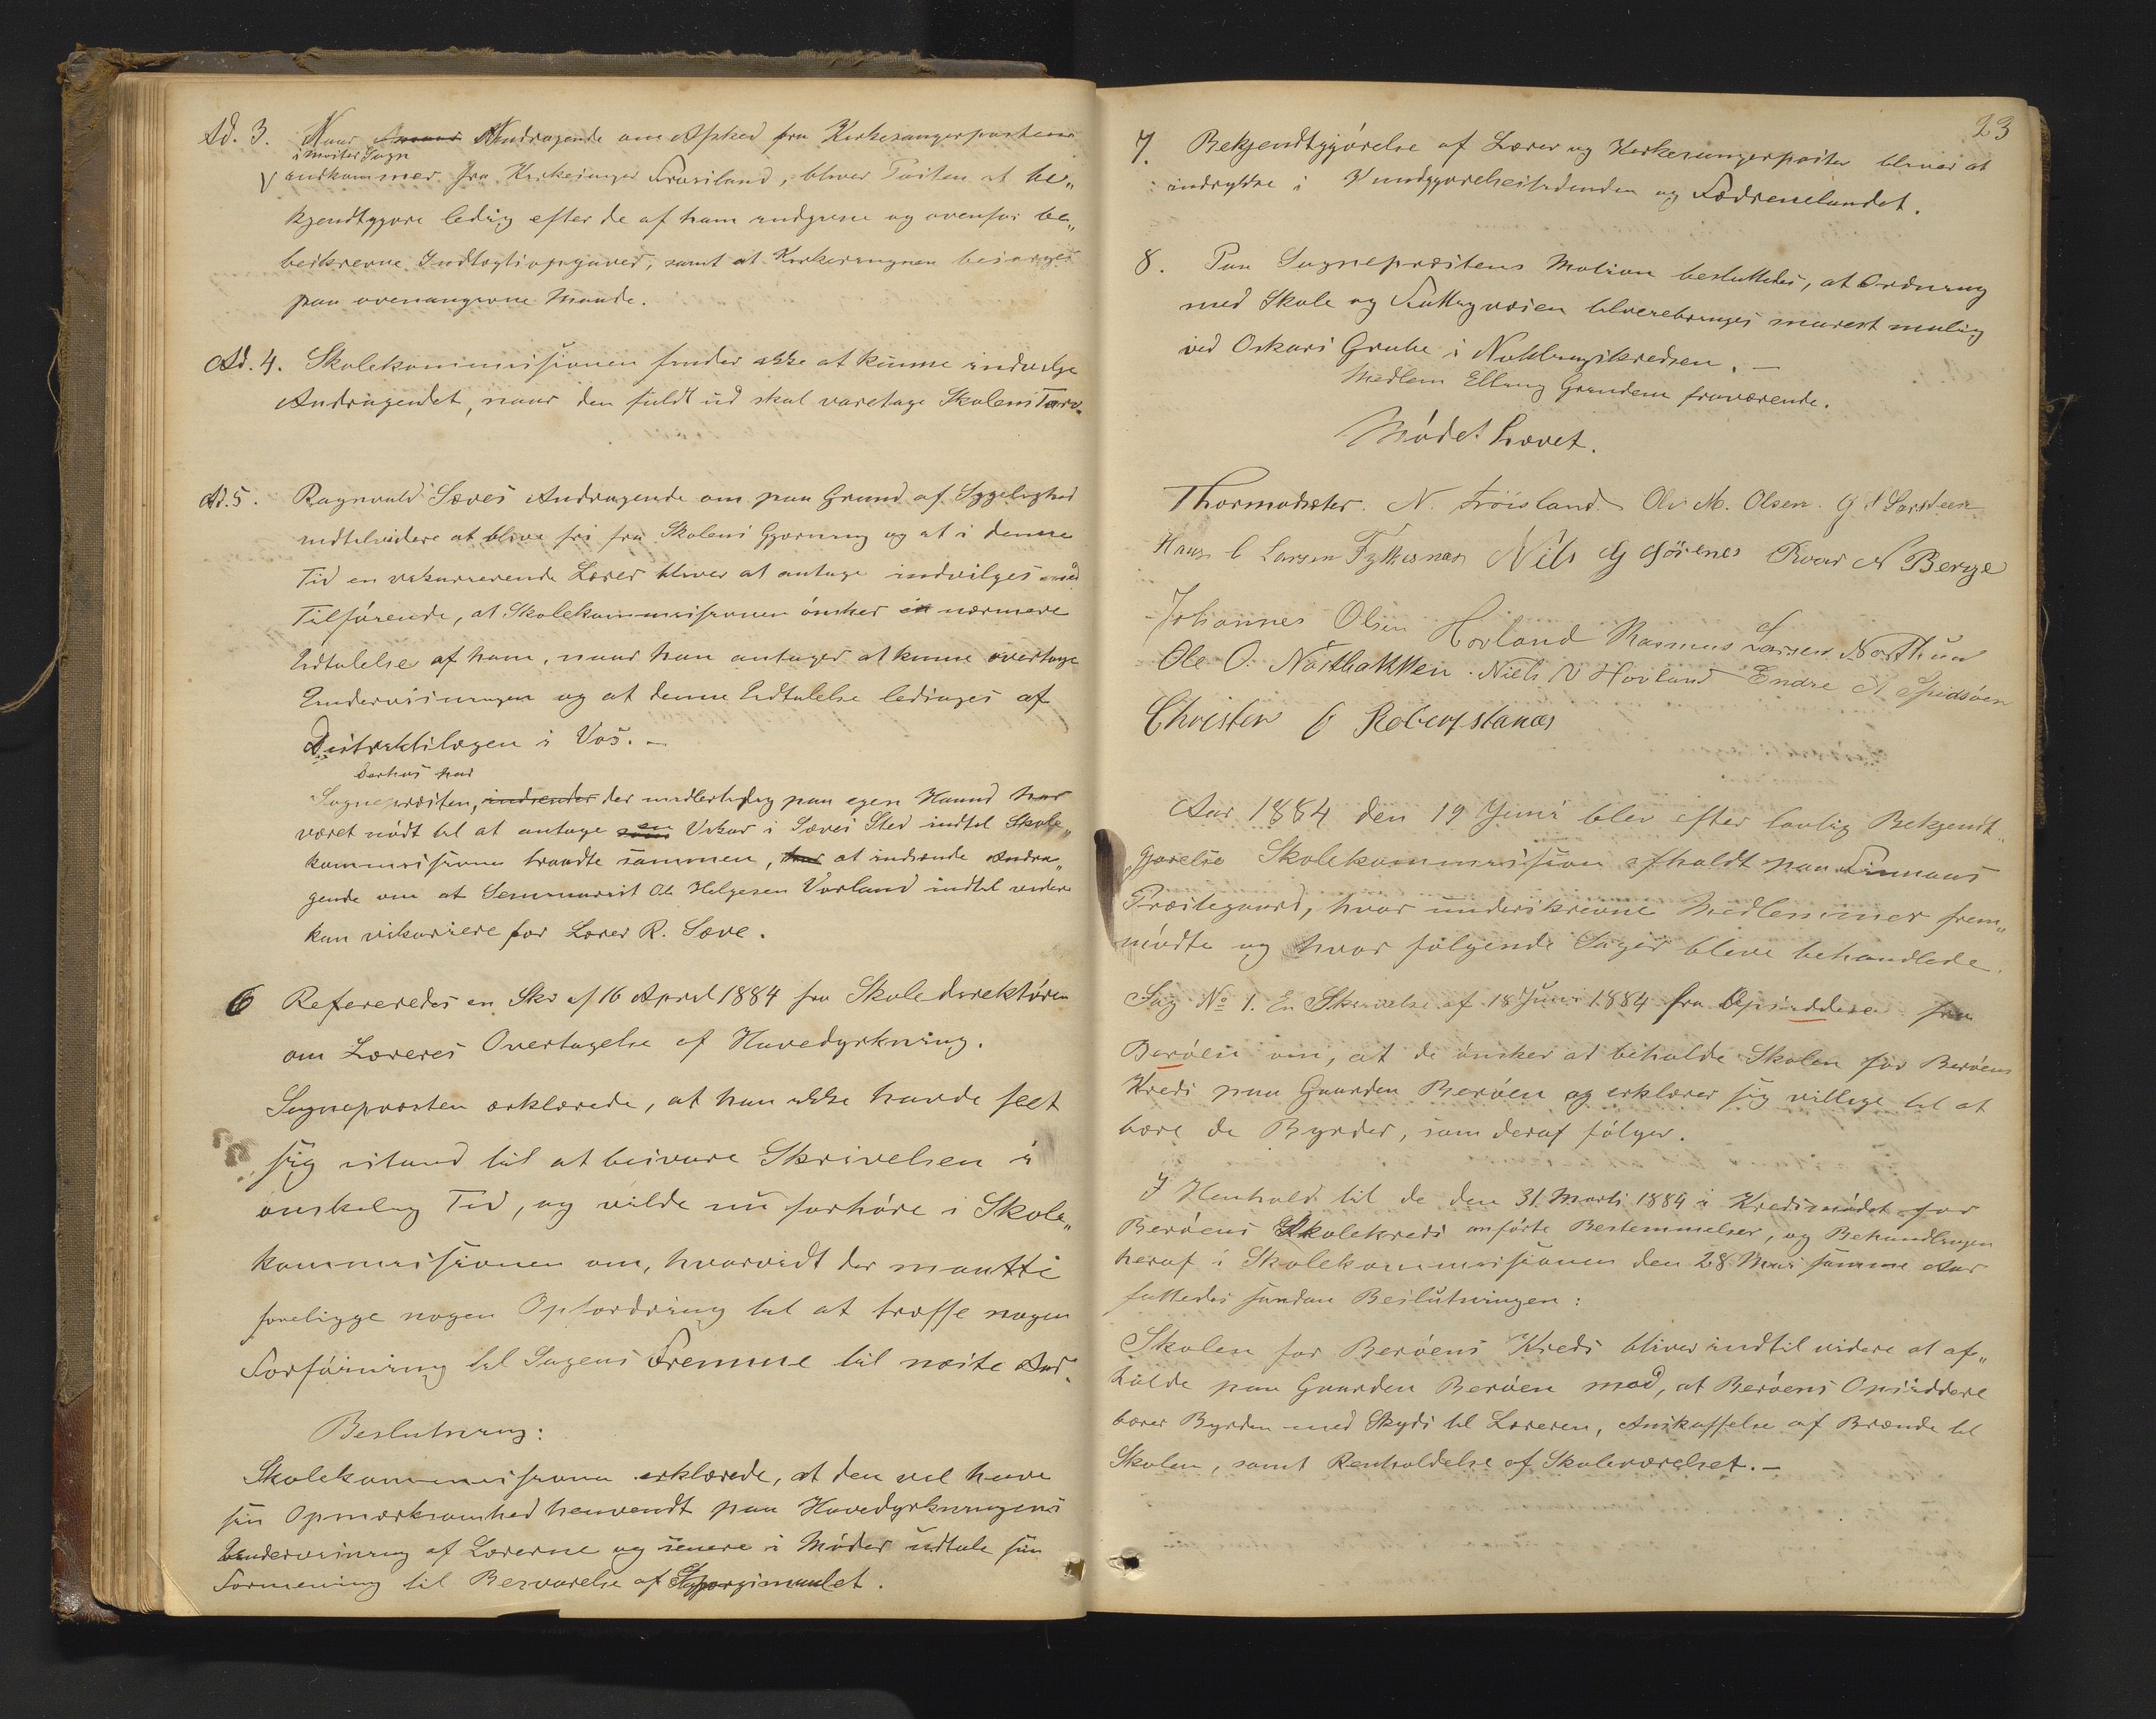 Ad. 3. Naar Andragende om Afsked fra Kirkesangerposten
i Moster Sogn
indkommer fra Kirkesanger Trøsiland, bliver Posten at be„
kjendtgjøre ledig efter de af ham indgivne og ovenfor be„
beskrevne Indtægtsopgaver, samt at Kirkesangen besørges
paa ovenangivne Maade.
Ad. 4. Skolekommissionen finder ikke at kunne indvilge
Andragendet, naar den fuldt ud skal varetage Skolens Tarv.
Ad. 5. Ragnvald Sæves Andragende om paa Grund af Sygelighed
indtilvidere at blive fri fra Skolens Gjerning og at i denne
Tid en vikarierende Lærer bliver at antage indvilges med
Tilføiende, at Skolekommissionen ønsker en nærmere
Udtalelse af ham, naar han antager at kunne overtage
Undervisningen og at denne Udtalelse ledsages af
Distriktslægen i Vos. –
Derhos har
Sognepræsten, indsender der midlertidig paa egen Haand har
været nødt til at antage en Vikar i Sæves Sted indtil Skole„
kommissionen traadte sammen, har at indsende Andra„
gende om at Seminarist Ole Helgesen Vorland indtil videre
kan vikariere for Lærer R. Sæve.
6 Refereredes en Skr af 16 April 1884 fra Skoledirektøren
om Læreres Overtagelse af Havedyrkning.
Sognepræsten erklærede, at han ikke havde seet
sig istand til at besvare Skrivelsen i
ønskelig Tid, og vilde nu forhøre i Skole„
kommissionen om, hvorvidt der maatte
foreligge nogen Opfordring til at træffe nogen
Forføining til Sagens Fremme til næste Aar.
Beslutning:
Skolekommissionen erklærede, at den vil have
sin Opmærksomhed henvendt paa Havedyrkningens
Undervisning af Lærerne og senere i Møder udtale sin
Formening til Besvarelse af Spørgsmaalet.
23
7. Bekjendtgjørelse af Lærer og Kirkesangerposter bliver at
indrykke i Kundgjørelsestidenden og Fædrenelandet.
8. Paa Sognepræstens Motion besluttedes, at Ordning
med Skole og Fattigvæsen tilveiebringes snarest mulig
ved Oskars Grube i Nøklingskredsen. –
Medlem Elling Grindem fraværende.
Mødet hævet.
Thormodsæter. N. Trøisland. Ole M. Olsen.
Hans C Larsen Fylkesnæs Nils G Gjøsenes Roar N Berge
Johannes Olsen Hovland Rasmus Larsen Northun
Ole O. Nordbakken. Niels N Hovland Endre Spidsøen
Christen
Aar 1884 den 19 Juni blev efter lovlig Bekjendt„
gjørelse Skolekommission afholdt paa Finnaas
Præstegaard, hvor underskrevne Medlemmer frem„
mødte og hvor følgende Sager bleve behandlede.
Sag No 1. En Skrivelse af 18 Juni 1884 fra Opsiddere fra
Berøen om, at de ønsker at beholde Skolen for Berøens
Kreds paa Gaarden Berøen og erklærer sig villige til at
bære de Byrder, som deraf følger.
I Henhold til de den 31. Marts 1884 i Kredsmødet for
Berøens Skolekreds anførte Bestemmelser, og Behandlingen
heraf i Skolekommissionen den 28 Mai samme Aar
fattedes saadan Beslutningen:
Skolen for Berøens Kreds bliver indtil videre at af„
holde paa Gaarden Berøen mod, at Berøens Opsiddere
bærer Byrden med Skyds til Læreren, Anskaffelse af Brænde til
Skolen, samt Renholdelse af Skoleværelset. –